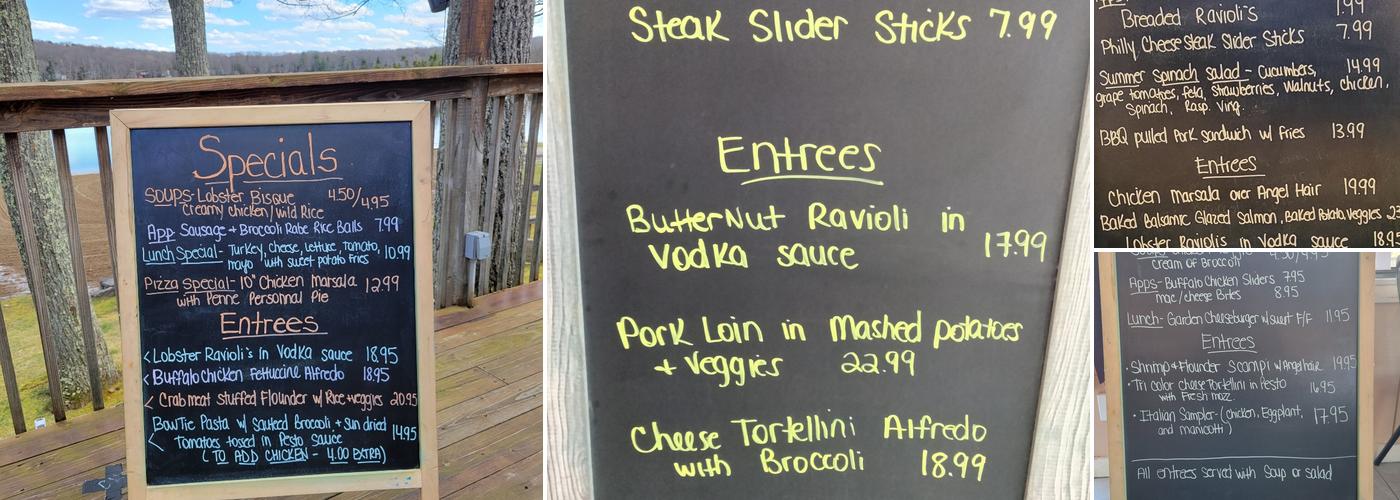 Specials
Soups- Lobster Bisque 4.50/4.95
creamy chicken/wild Rice
App Sausage + Brocoli Rabe Rice Balls 7.99
Lunch Special- Turkey, cheese, lettuce, tomato, 10.99
mayo with sweet potato fries
Pizza Special- 10" Chicken Marsala 12.99
with Penne Personnal Pie
Entrees
<Lobster Ravioli's in Vodka sauce 18.95
<Buffalo chicken Fettuccine Alfredo 18.95
<Crabmeat stuffed Flounder w/ Rice+veggies 20.95
BowTie Pasta w/ Sauteed Brocoli + Sun dried
< Tomatoes tossed in Pesto sauce 14.95
(TO ADD CHICKEN - 4.00 EXTRA)
Steak Slider Sticks 7.99
Entrees
ButterNut Ravioli in
Vodka sauce 17.99
Pork Loin in Mashed potatoes
+ Veggies 22.99
Cheese Tortellini Alfredo
with Broccoli 18.99
Breaded Ravioli's 7.99
Philly Cheesesteak Slider Sticks 7.99
Summer spinach salad - Cucumbers, 14.99
grape tomatoes, feta, strawberries, walnuts, chicken,
Spinach, Rasp. Ving.
BBQ pulled Pork sandwich w/ fries 13.99
Entrees
Chicken Marsala over Angel Hair 19.99
Baked Balsamic Glazed Salmon, Baked Potato, Veggies
Lobster Raviolis in Vodka sauce 18.95
cream of Broccoli
Apps- Buffalo Chicken Sliders 7.95
mac/cheese Bites 8.95
Lunch- Garden Cheeseburger w/ sweet F/F 11.95
Entrees
• Shrimp + Flounder Scampi w/ Angelhair 19.95
• Tri color cheese Tortellini in Pesto 16.95
with Fresh mozz.
• Italian Sampler- (Chicken, Eggplant, 17.95
and manicotti)
All entrees served with Soup or salad